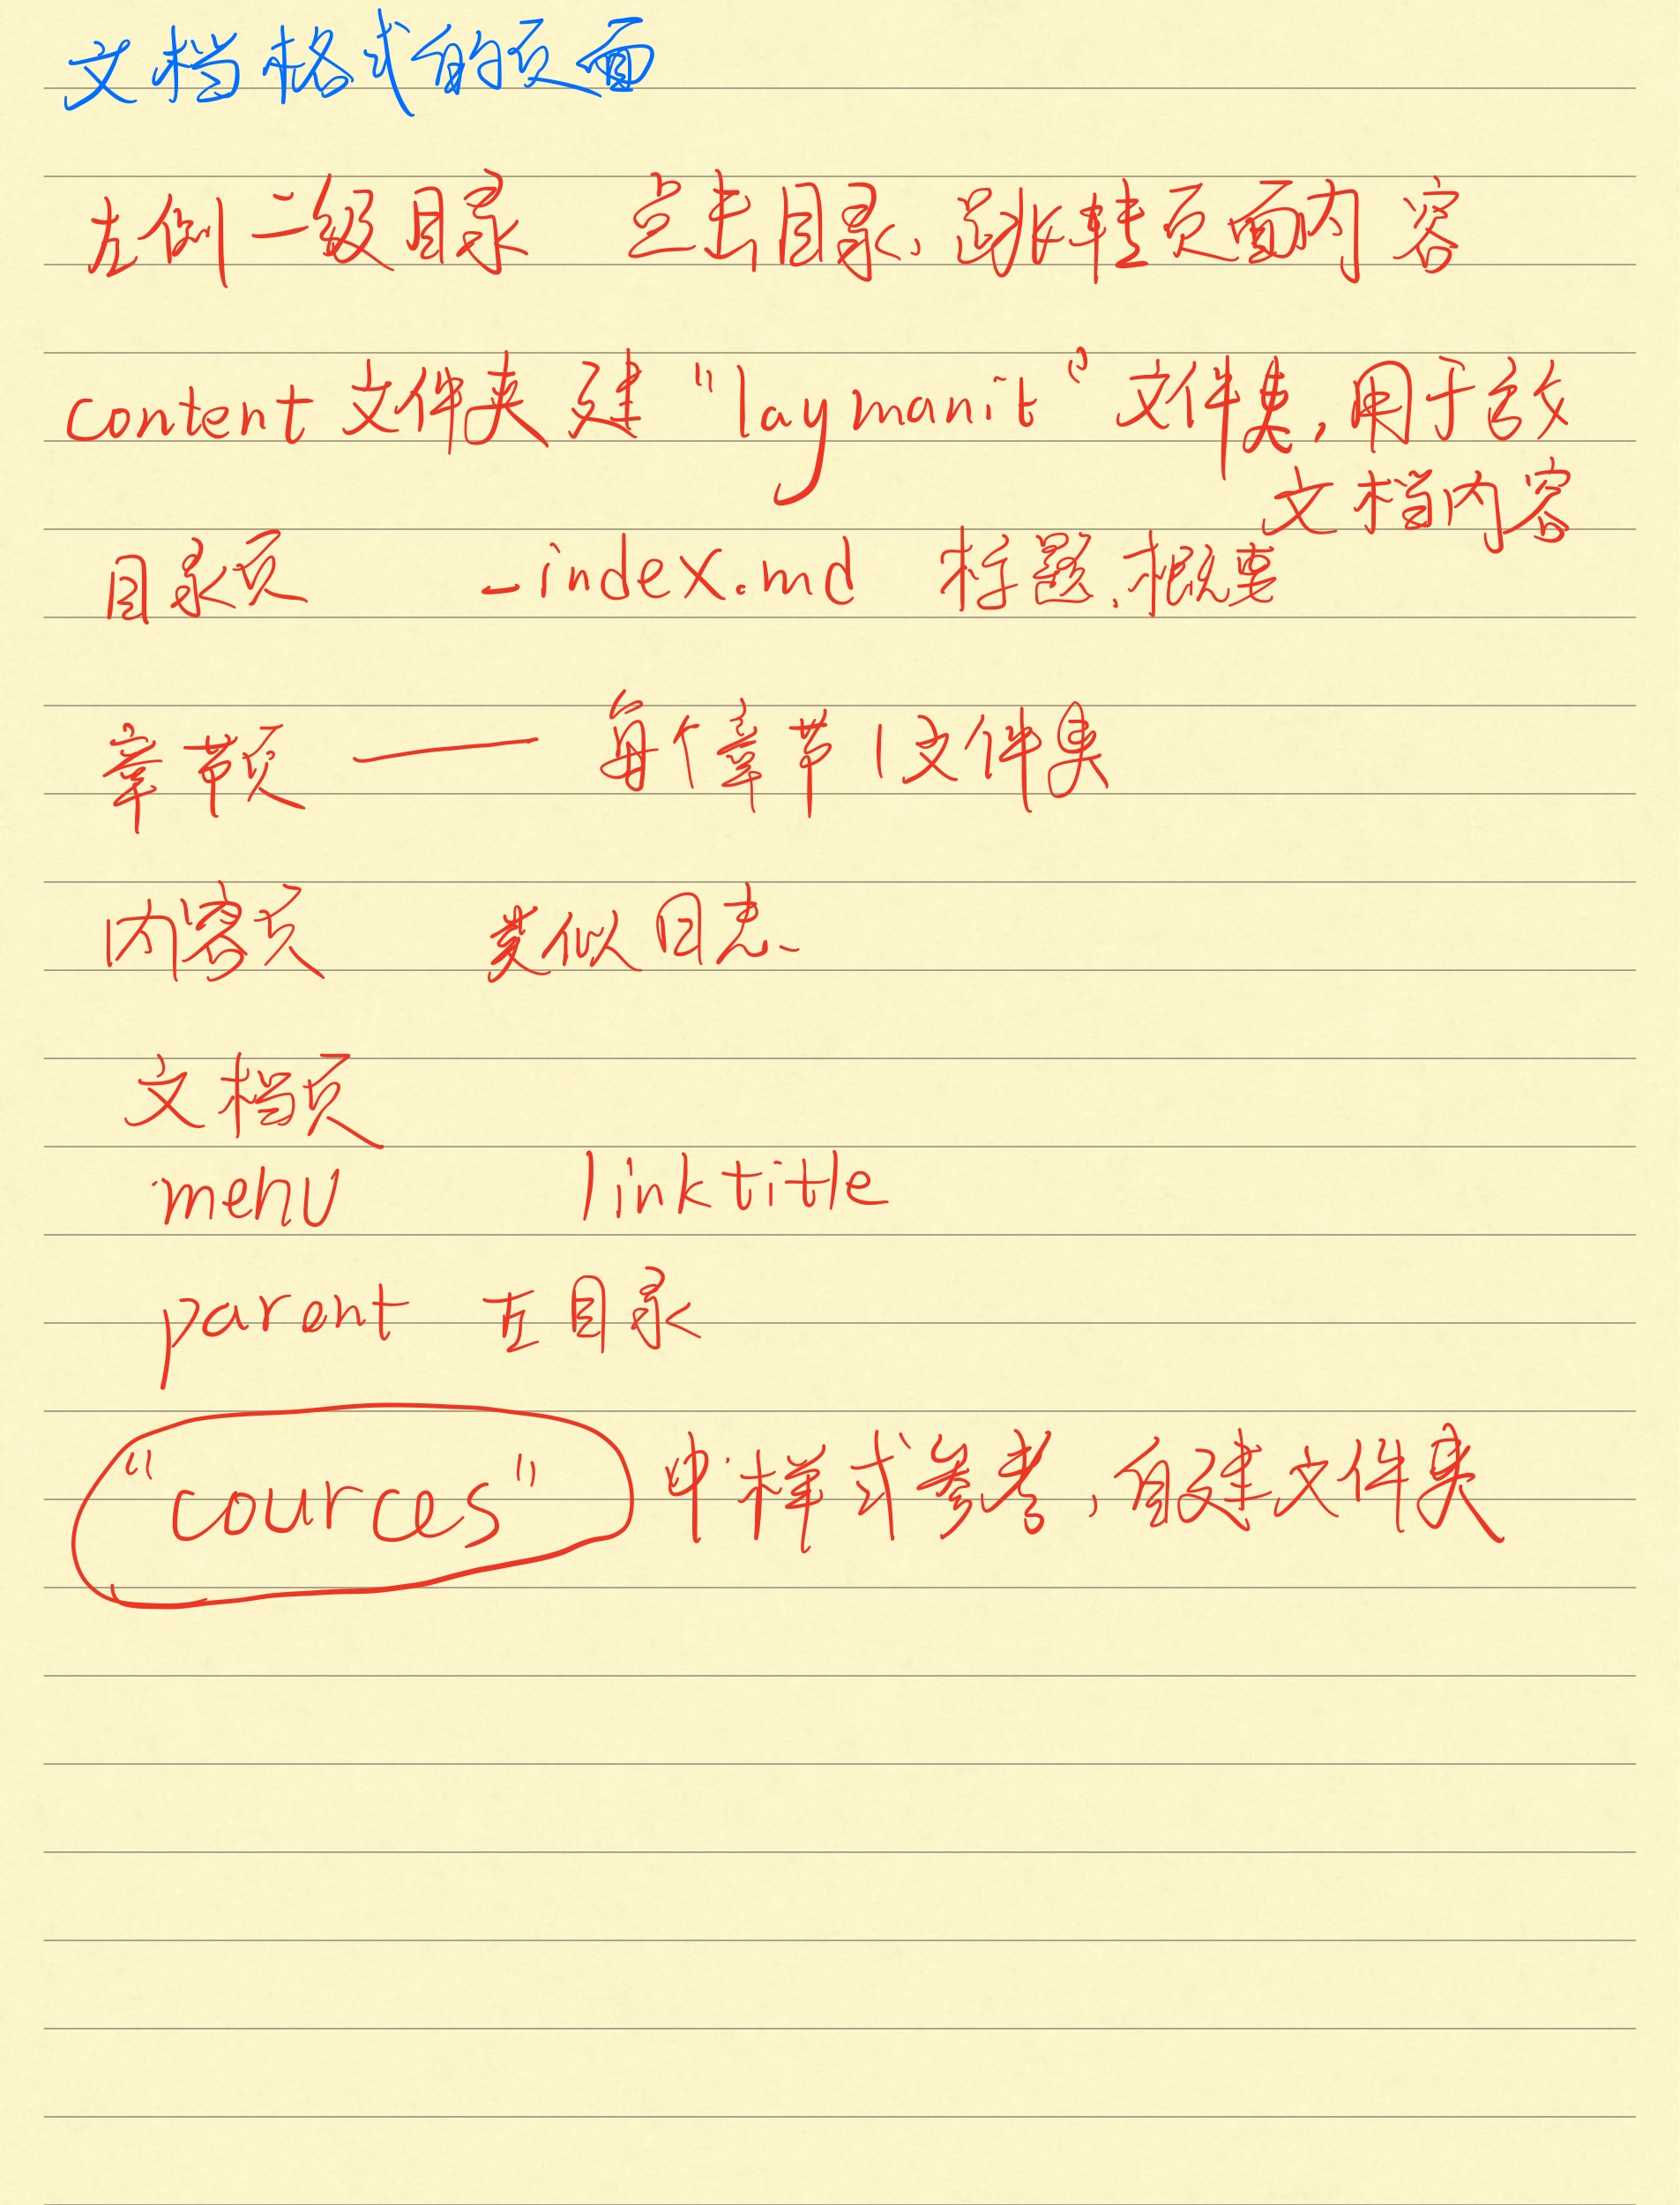 文档格式的页面
左侧二级目录 点击目录、跳转页面内容
content 文件夹 建 "laymanit" 文件夹,用于放
文档内容
目录页 _index.md 标题、概要
章节页 —— 每个章节1文件夹
内容页 类似日志、
文档页
menu linktitle
parent 左目录
"cources" 中样式参考,自建文件夹